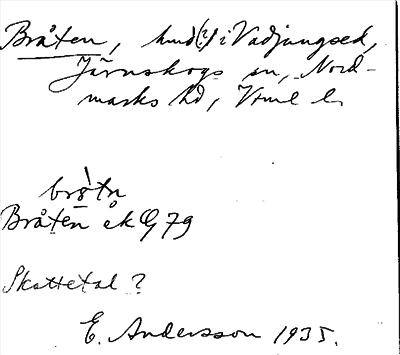 Bråten, hmd(?) i Vadjungsed,
Järnskogs sn, Nord-
marks hd, Vrml l.
bròtn
Bråten ek G 79
Skattetal?
E. Andersson 1935.